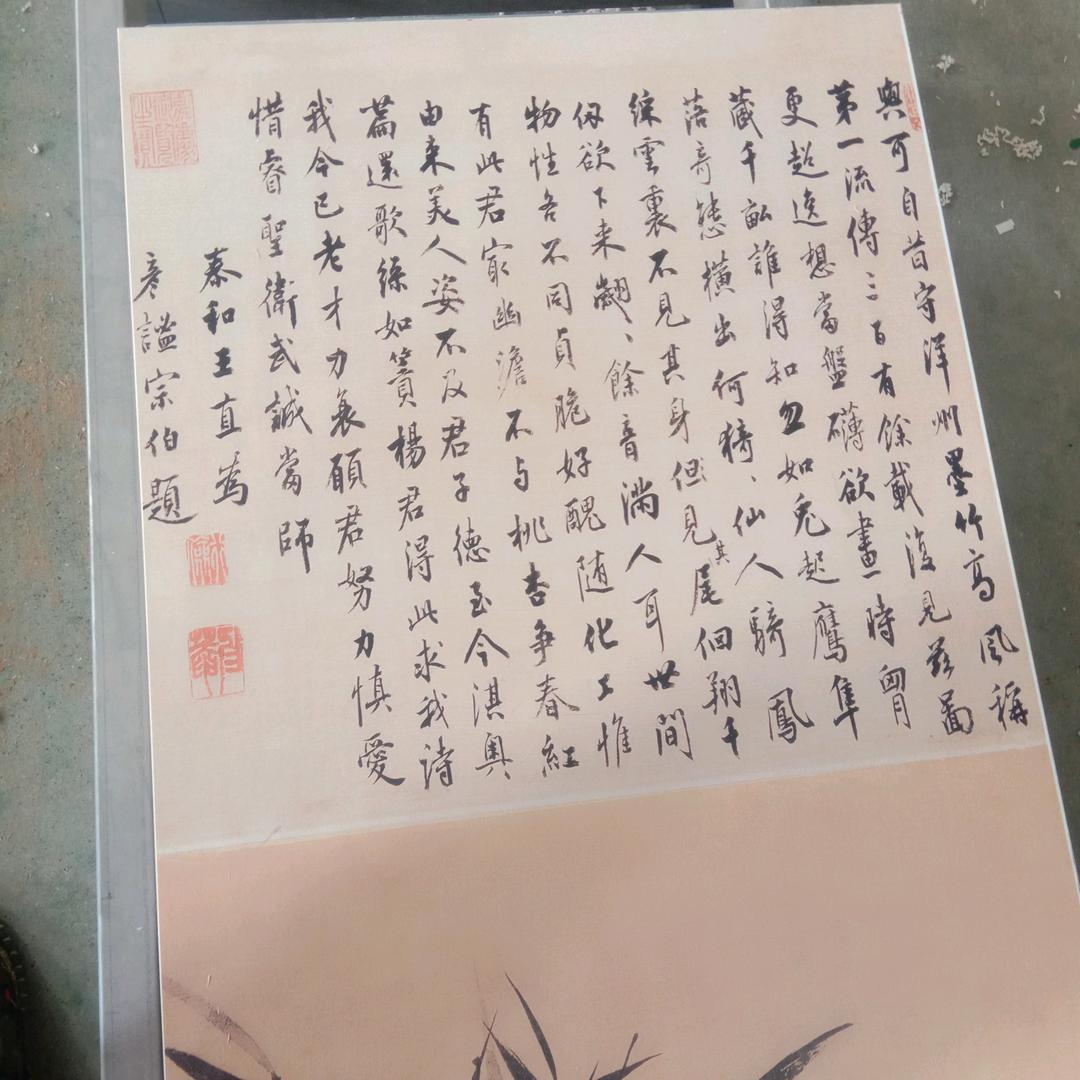 與可自昔守洋州墨竹高風稱
第一流傳三百有餘載復見茲圖
更超逸想當盤礴欲畫時胷
藏千畝誰得知忽如兎起鷹隼
落奇態橫出何猗〻仙人騎鳳
綵雲裏不見其身但見其尾佪翔千
仭欲下未翽〻餘音滿人耳世間
物性各不同貞脆好醜随化工惟
有此君家幽澹不与桃杏争春紅
由来美人姿不及君子德至今淇奥
篇還歌綠如簀楊君得此求我詩
我今已老才力衰願君努力慎愛
惜睿聖衛武誠當師
泰和王直為
彥謐宗伯題